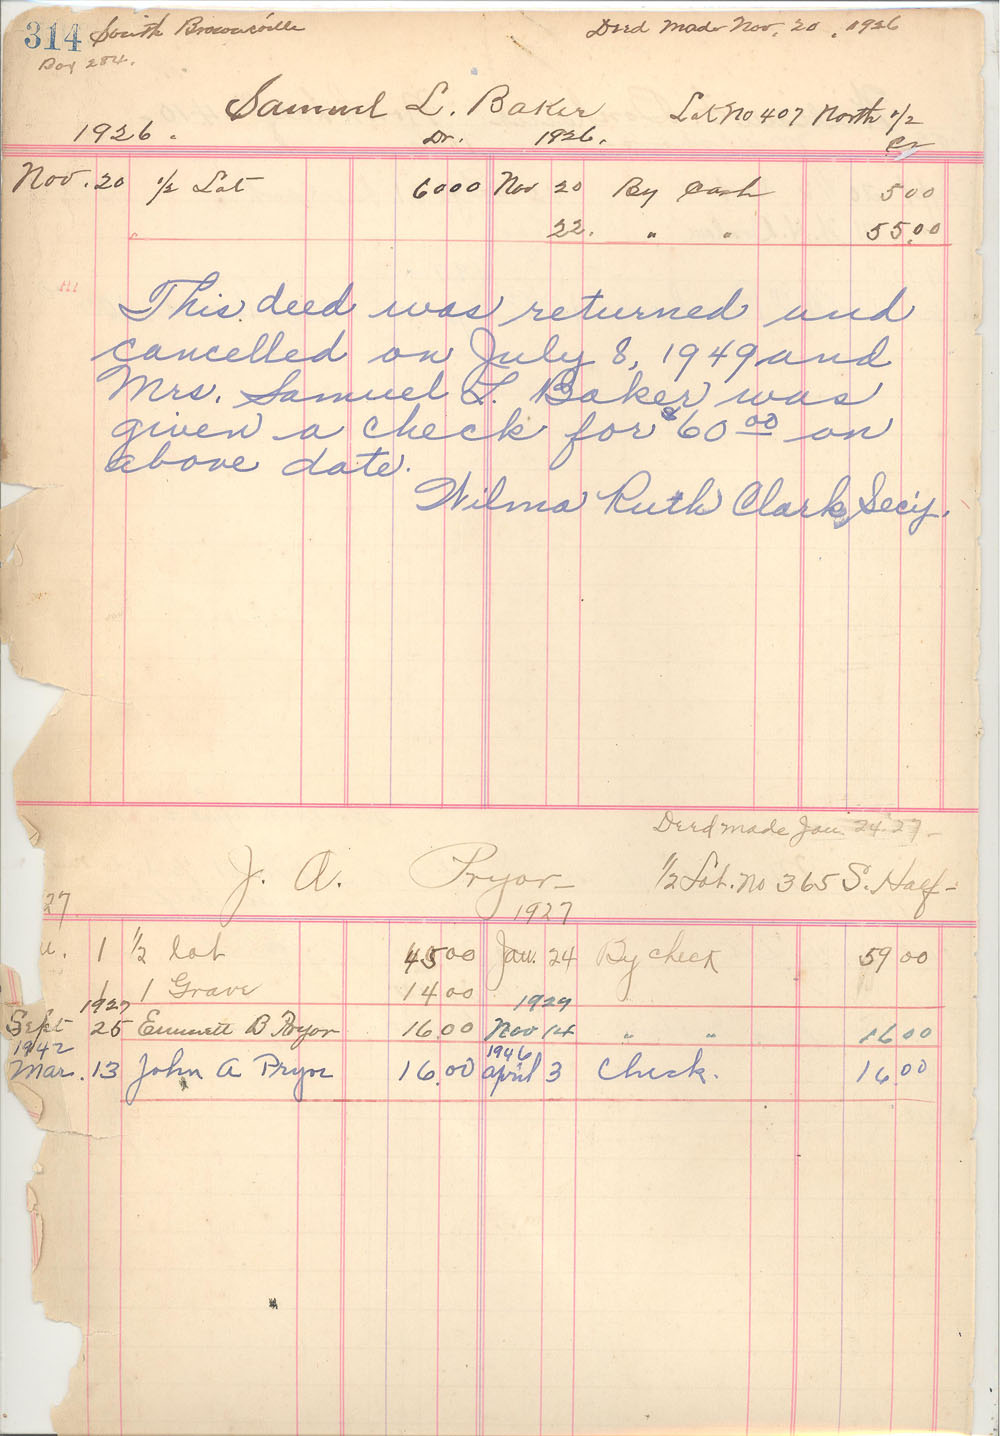 314 South Brownsville Deed Made Nov. 20, 1926
Box 284.
Samuel L. Baker Lot No 407 North 1/2
1926. Dr. 1926. Cr
Nov. 20 1/2 Lot 60 00 Nov 20 By Cash 5 00
22. " " 55.00
This deed was returned and
cancelled on July 8, 1949 and
Mrs. Samuel L. Baker was
given a check for $60 00 on
above date.
Wilma Ruth Clark, Sec'y.
Deed made Jan 24 27-
J. A. Pryor- 1/2 Lot. No 365 S. Half-
27 1927
1 1/2 lot 45 00 Jan. 24 By check 59 00
1 Grave 14 00
1927 1929
Sept 25 Emmett B Pryor 16.00 Nov 14 " " 16 00
1942 1946
Mar. 13 John A Pryor 16.00 April 3 Check. 16.00